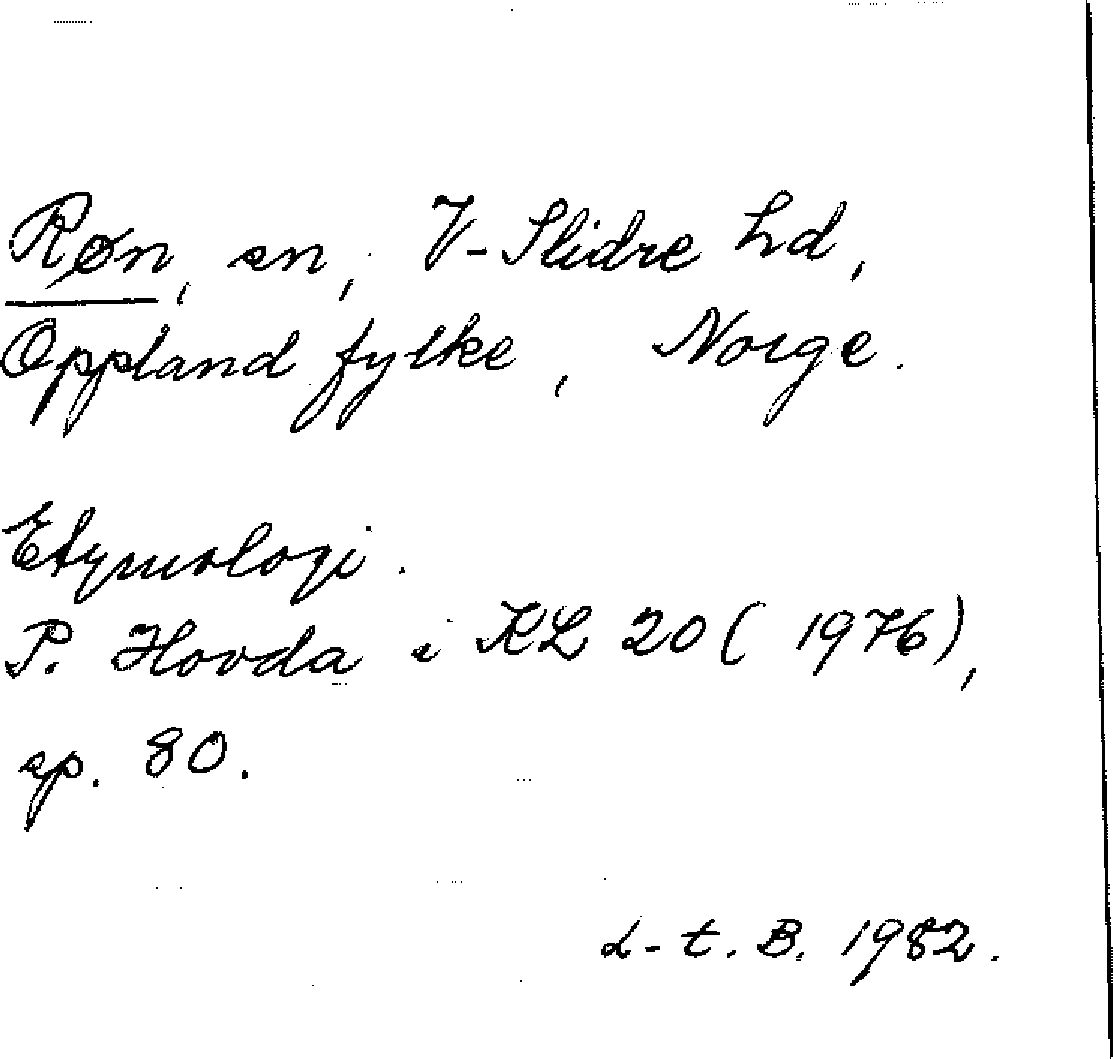 Røn, sn, V-Slidre hd,
Oppland fylke, Norge.
Etymologi.
P. Hovda i KL 20 (1976),
sp. 80.
L-t. B. 1982.